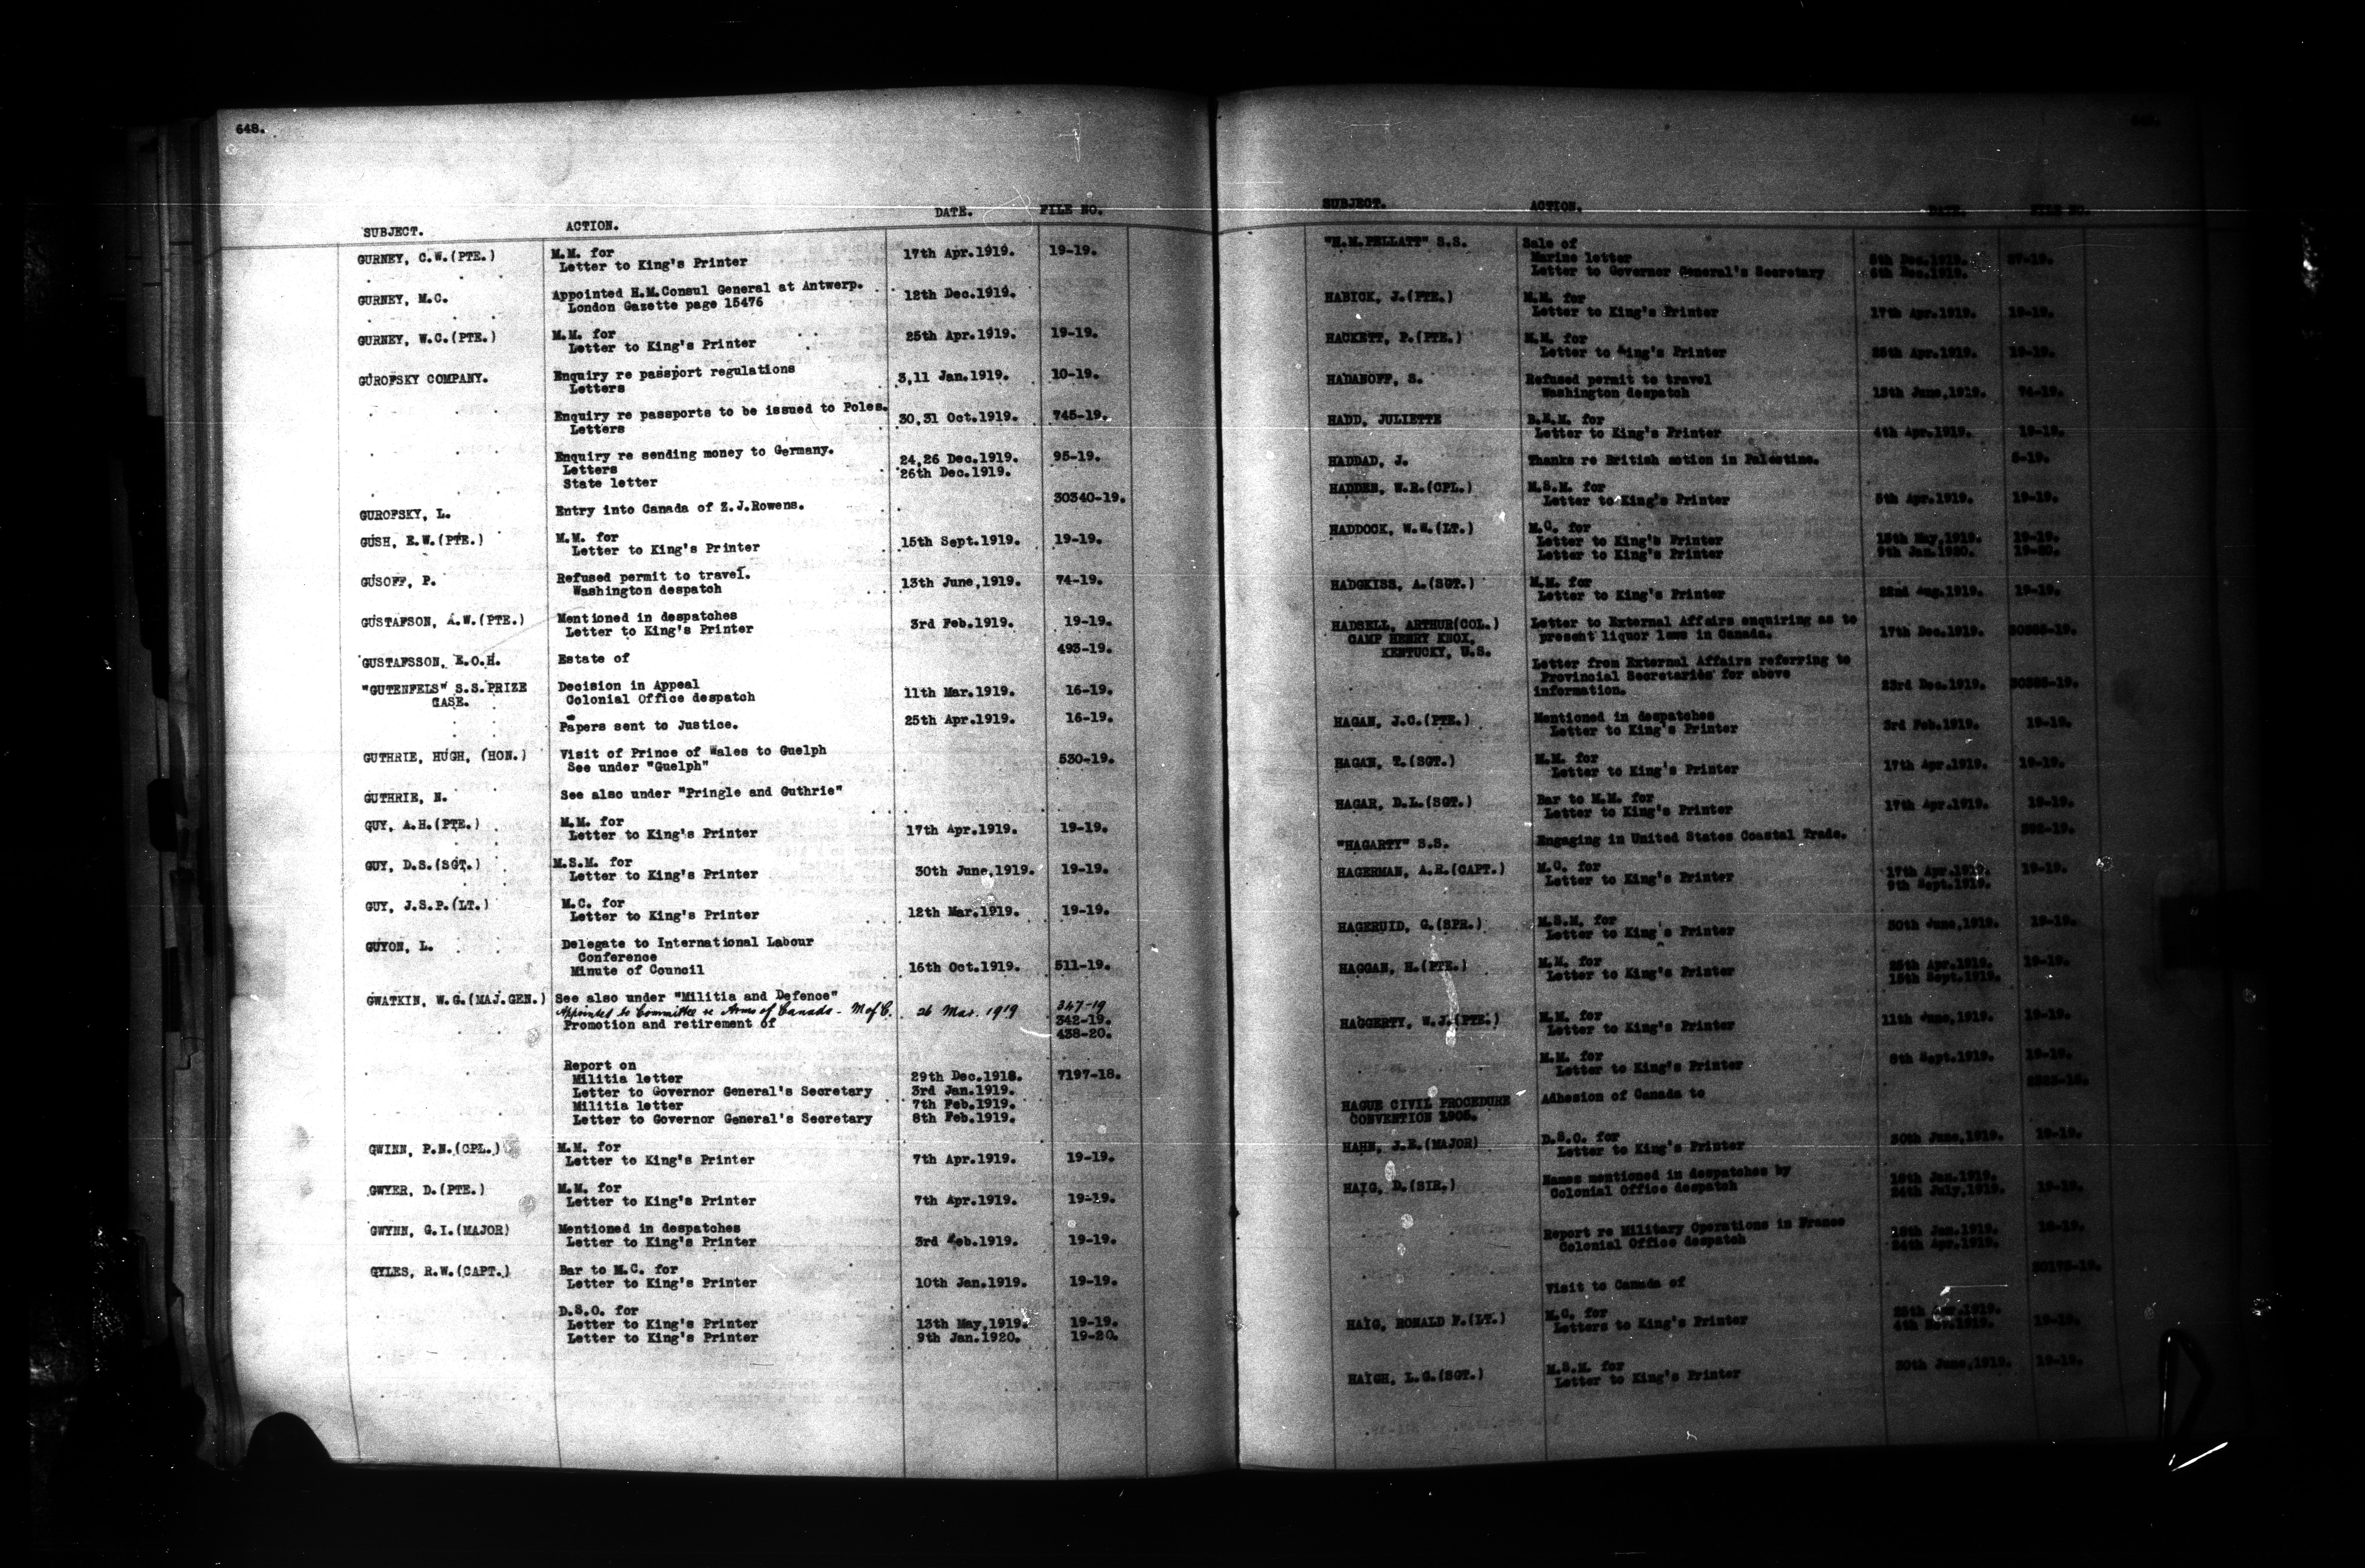 648.
SUBJECT. ACTION. DATE. FILE NO.
GURNEY, C.W.(PTE.) M.M. for
Letter to King's Printer 17th Apr.1919. 19-19.
GURNEY, M.C. Appointed H.M.Consul General at Antwerp.
London Gazette page 15476 12th Dec.1919.
GURNEY, W.C.(PTE.) M.M. for
Letter to King's Printer 25th Apr.1919. 19-19.
GUROFSKY COMPANY. Enquiry re passport regulations
Letters 3,11 Jan.1919. 10-19.
Enquiry re passports to be issued to Poles.
Letters 30,31 Oct.1919. 745-19.
Enquiry re sending money to Germany.
Letters 24,26 Dec.1919. 95-19.
State letter 26th Dec.1919.
GUROFSKY, L. Entry into Canada of Z.J.Rowens. 30340-19.
GUSH, E.W.(PTE.) M.M. for
Letter to King's Printer 15th Sept.1919. 19-19.
GUSOFF, P. Refused permit to travel.
Washington despatch 13th June,1919. 74-19.
GUSTAFSON, A.W.(PTE.) Mentioned in despatches
Letter to King's Printer 3rd Feb.1919. 19-19.
GUSTAFSSON, E.O.H. Estate of 493-19.
"GUTENFELS" S.S.PRIZE Decision in Appeal
CASE. Colonial Office despatch 11th Mar.1919. 16-19.
Papers sent to Justice. 25th Apr.1919. 16-19.
GUTHRIE, HUGH, (HON.) Visit of Prince of Wales to Guelph
See under "Guelph" 530-19.
GUTHRIE, N. See also under "Pringle and Guthrie"
GUY, A.H.(PTE.) M.M. for
Letter to King's Printer 17th Apr.1919. 19-19.
GUY, D.S.(SGT.) M.S.M. for
Letter to King's Printer 30th June,1919. 19-19.
GUY, J.S.P.(LT.) M.C. for
Letter to King's Printer 12th Mar.1919. 19-19.
GUYON, L. Delegate to International Labour
Conference
Minute of Council 16th Oct.1919. 511-19.
GWATKIN, W.G.(MAJ.GEN.) See also under "Militia and Defence"
Appointed to Committee re Arms of Canada - M of C. 26 Mar. 1919 347-19
Promotion and retirement of 342-19.
438-20.
Report on
Militia letter 29th Dec.1918. 7197-18.
Letter to Governor General's Secretary 3rd Jan.1919.
Militia letter 7th Feb.1919.
Letter to Governor General's Secretary 8th Feb.1919.
GWINN, P.N.(CPL.) M.M. for
Letter to King's Printer 7th Apr.1919. 19-19.
GWYER, D.(PTE.) M.M. for
Letter to King's Printer 7th Apr.1919. 19-19.
GWYNN, G.I.(MAJOR) Mentioned in despatches
Letter to King's Printer 3rd Feb.1919. 19-19.
GYLES, R.W.(CAPT.) Bar to M.C. for
Letter to King's Printer 10th Jan.1919. 19-19.
D.S.O. for
Letter to King's Printer 13th May,1919. 19-19.
Letter to King's Printer 9th Jan.1920. 19-20.
SUBJECT. ACTION. DATE. FILE NO.
"H.M.PELLATT" S.S. Sale of
Marine letter 5th Dec.1919. 27-19.
Letter to Governor General's Secretary 6th Dec.1919.
HABICK, J.(PTE.) M.M. for
Letter to King's Printer 17th Apr.1919. 19-19.
HACKETT, P.(PTE.) M.M. for
Letter to King's Printer 25th Apr.1919. 19-19.
HADANOFF, S. Refused permit to travel
Washington despatch 13th June,1919. 74-19.
HADD, JULIETTE B.E.M. for
Letter to King's Printer 4th Apr.1919. 19-19.
HADDAD, J. Thanks re British action in Palestine.
HADDEN, W.R.(CPL.) M.S.M. for
Letter to King's Printer 5th Apr.1919. 19-19.
HADDOCK, W.W.(LT.) M.C. for
Letter to King's Printer 13th May,1919. 19-19.
Letter to King's Printer 9th Jan.1920. 19-20.
HADGKISS, A.(SGT.) M.M. for
Letter to King's Printer 22nd Aug.1919. 19-19.
HADSELL, ARTHUR(COL.) Letter to External Affairs enquiring as to
CAMP HENRY KNOX, present liquor laws in Canada. 17th Dec.1919.
KENTUCKY, U.S.
Letter from External Affairs referring to
Provincial Secretaries for above
information. 23rd Dec.1919.
HAGAN, J.C.(PTE.) Mentioned in despatches
Letter to King's Printer 3rd Feb.1919. 19-19.
HAGAN, T.(SGT.) M.M. for
Letter to King's Printer 17th Apr.1919. 19-19.
HAGAR, D.L.(SGT.) Bar to M.M. for
Letter to King's Printer 17th Apr.1919. 19-19.
"HAGARTY" S.S. Engaging in United States Coastal Trade.
HAGERMAN, A.R.(CAPT.) M.C. for 17th Apr.1919. 19-19.
Letter to King's Printer 9th Sept.1919.
HAGERUID, G.(SPR.) M.S.M. for
Letter to King's Printer 30th June,1919. 19-19.
HAGGAN, H.(PTE.) M.M. for 25th Apr.1919. 19-19.
Letter to King's Printer 15th Sept.1919.
HAGGERTY, W.J.(PTE.) M.M. for
Letter to King's Printer 11th June,1919. 19-19.
M.M. for
Letter to King's Printer Sept.1919. 19-19.
HAGUE CIVIL PROCEDURE Adhesion of Canada to
CONVENTION 1905.
HAHN, J.E.(MAJOR) D.S.O. for
Letter to King's Printer 30th June,1919. 19-19.
HAIG, D.(SIR.) Names mentioned in despatches by
Colonial Office despatch 24th July,1919. 19-19.
Report re Military Operations in France
Colonial Office despatch
Visit to Canada of
HAIG, RONALD F.(LT.) M.C. for 25th Apr.1919.
Letters to King's Printer 19-19.
HAIGH, L.G.(SGT.) M.S.M. for
Letter to King's Printer 30th June,1919. 19-19.